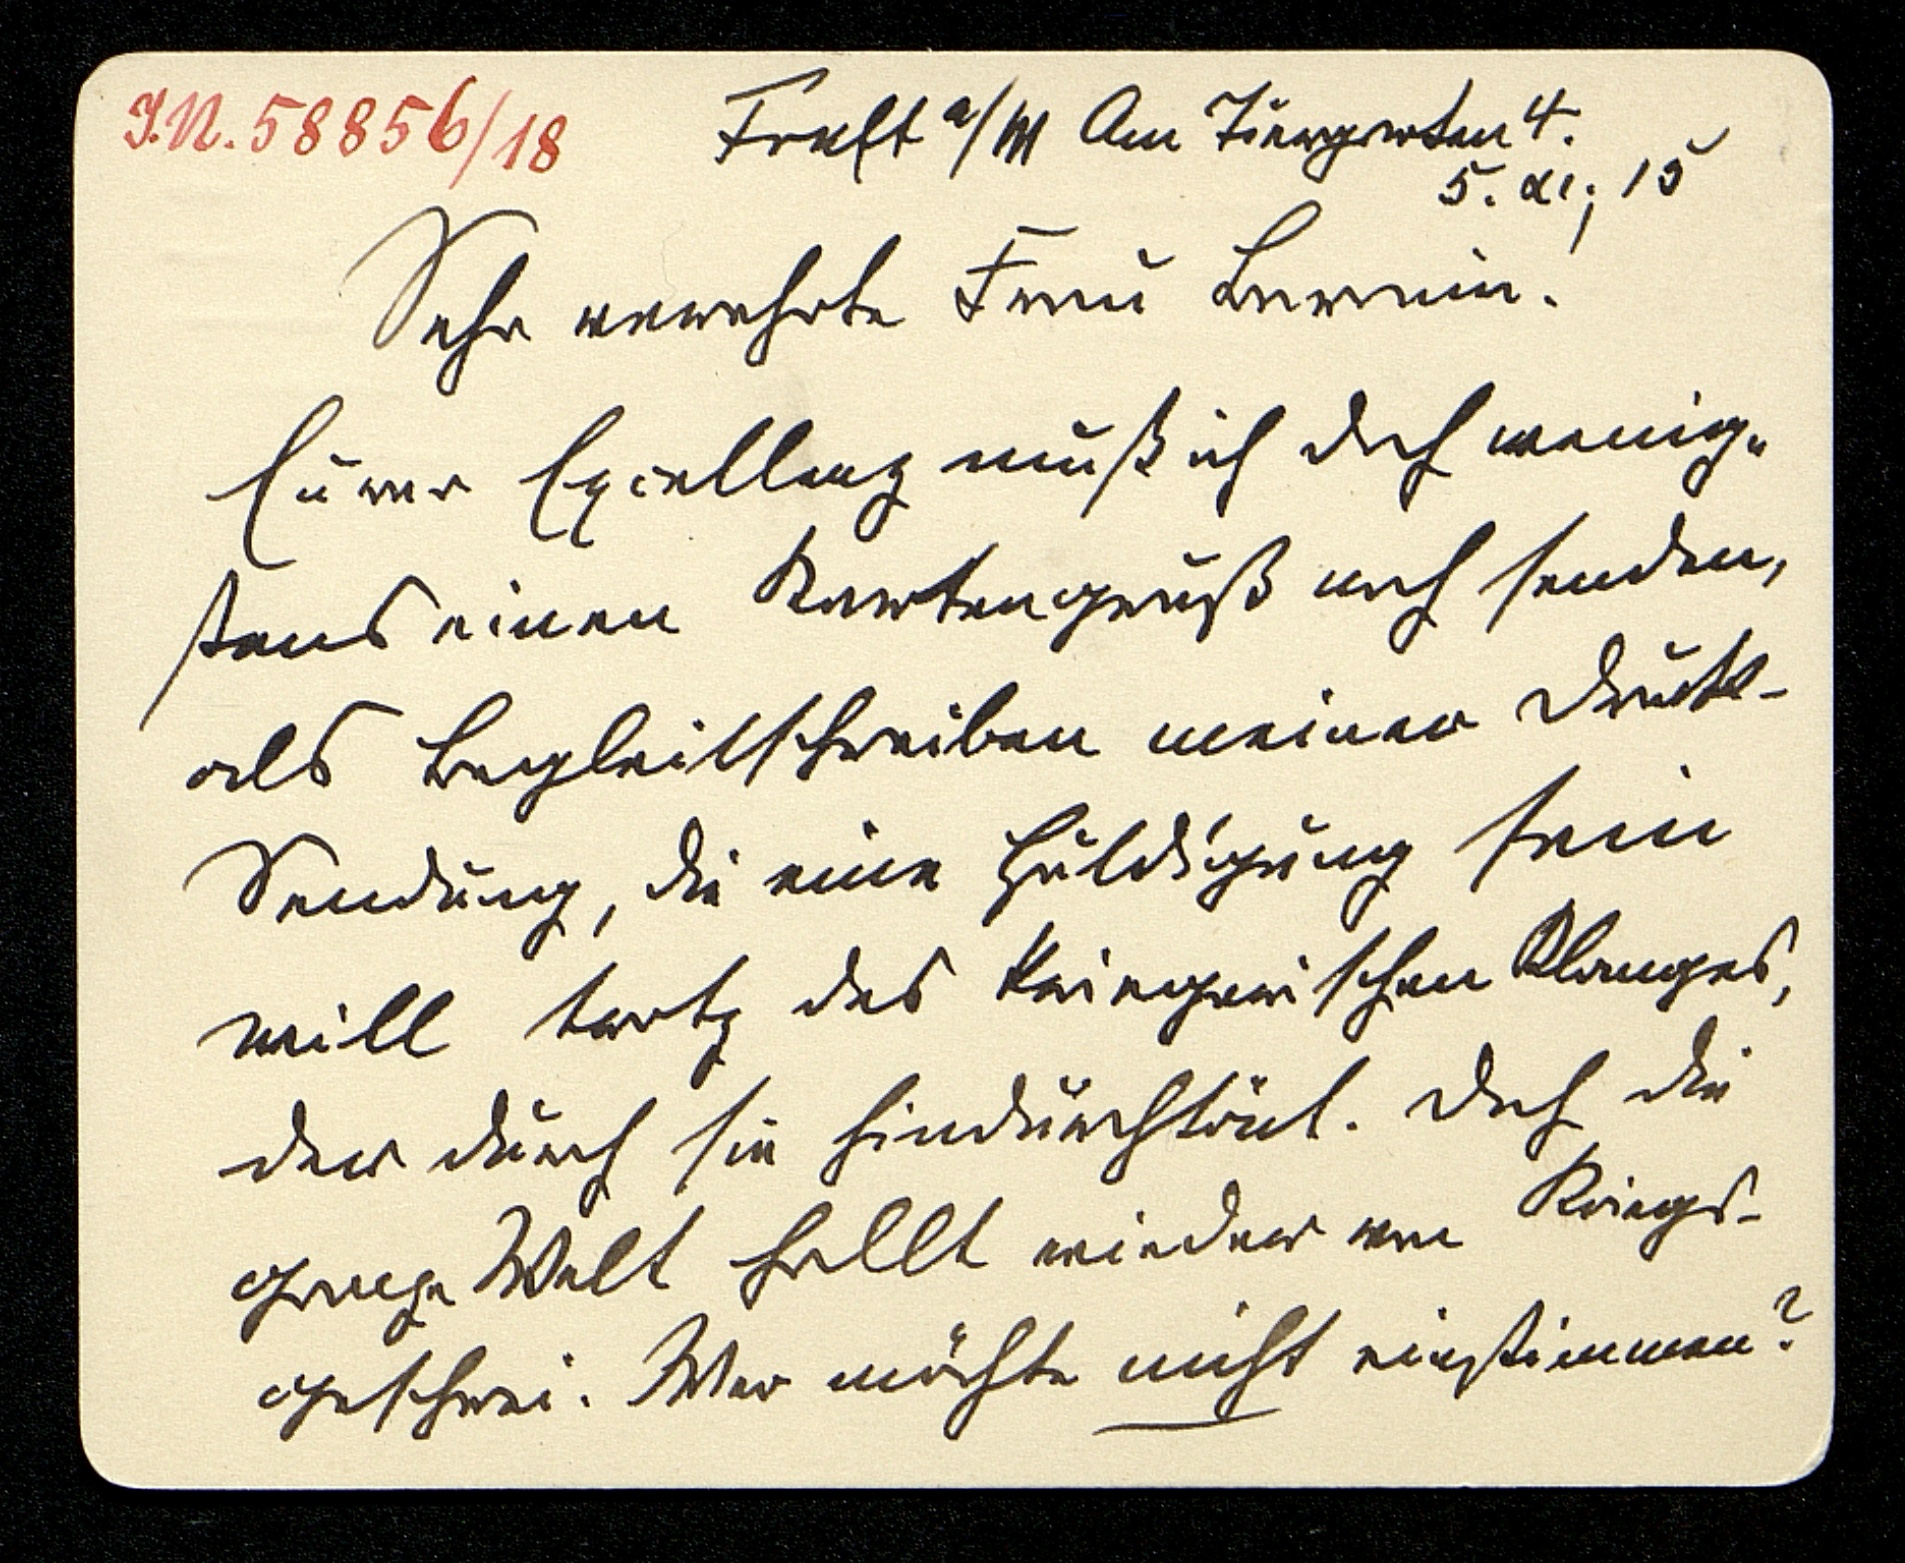 I.N. 58856/18
Frkft a/M Am Tiergarten 4.
5. XI; 15
Sehr verehrte Frau Baronin!
Euer Excellenz muß ich doch wenig-
stens einen Kartengruß noch senden,
als Begleitschreiben meiner Druck-
Sendung, die eine Huldigung sein
will trotz des kriegerischen Klanges,
der durch sie hindurchtönt. Doch die
ganze Welt hallt wieder von Kriegs-
geschrei. Wer möchte nicht einstimmen?